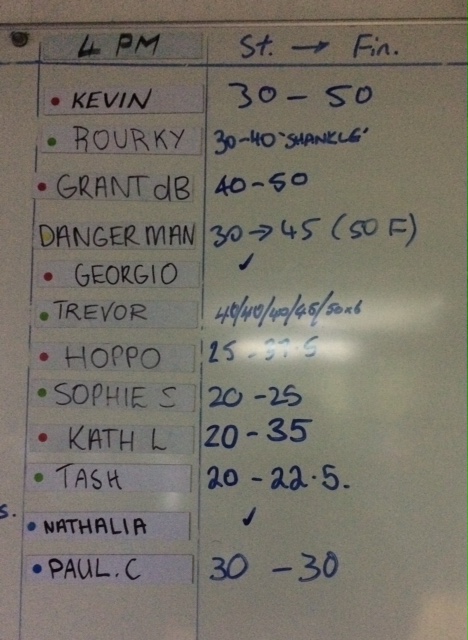 4 PM St. → Fin.
KEVIN 30 - 50
ROURKY 30-40 "SHANKLE"
GRANT dB 40-50
DANGERMAN 30 → 45 (50 F)
GEORGIO ✓
TREVOR 40/40/40/45/50x6
HOPPO 25 - 37.5
SOPHIE S 20 - 25
KATH L 20 - 35
TASH 20 - 22.5.
s.
NATHALIA ✓
PAUL.C 30 - 30